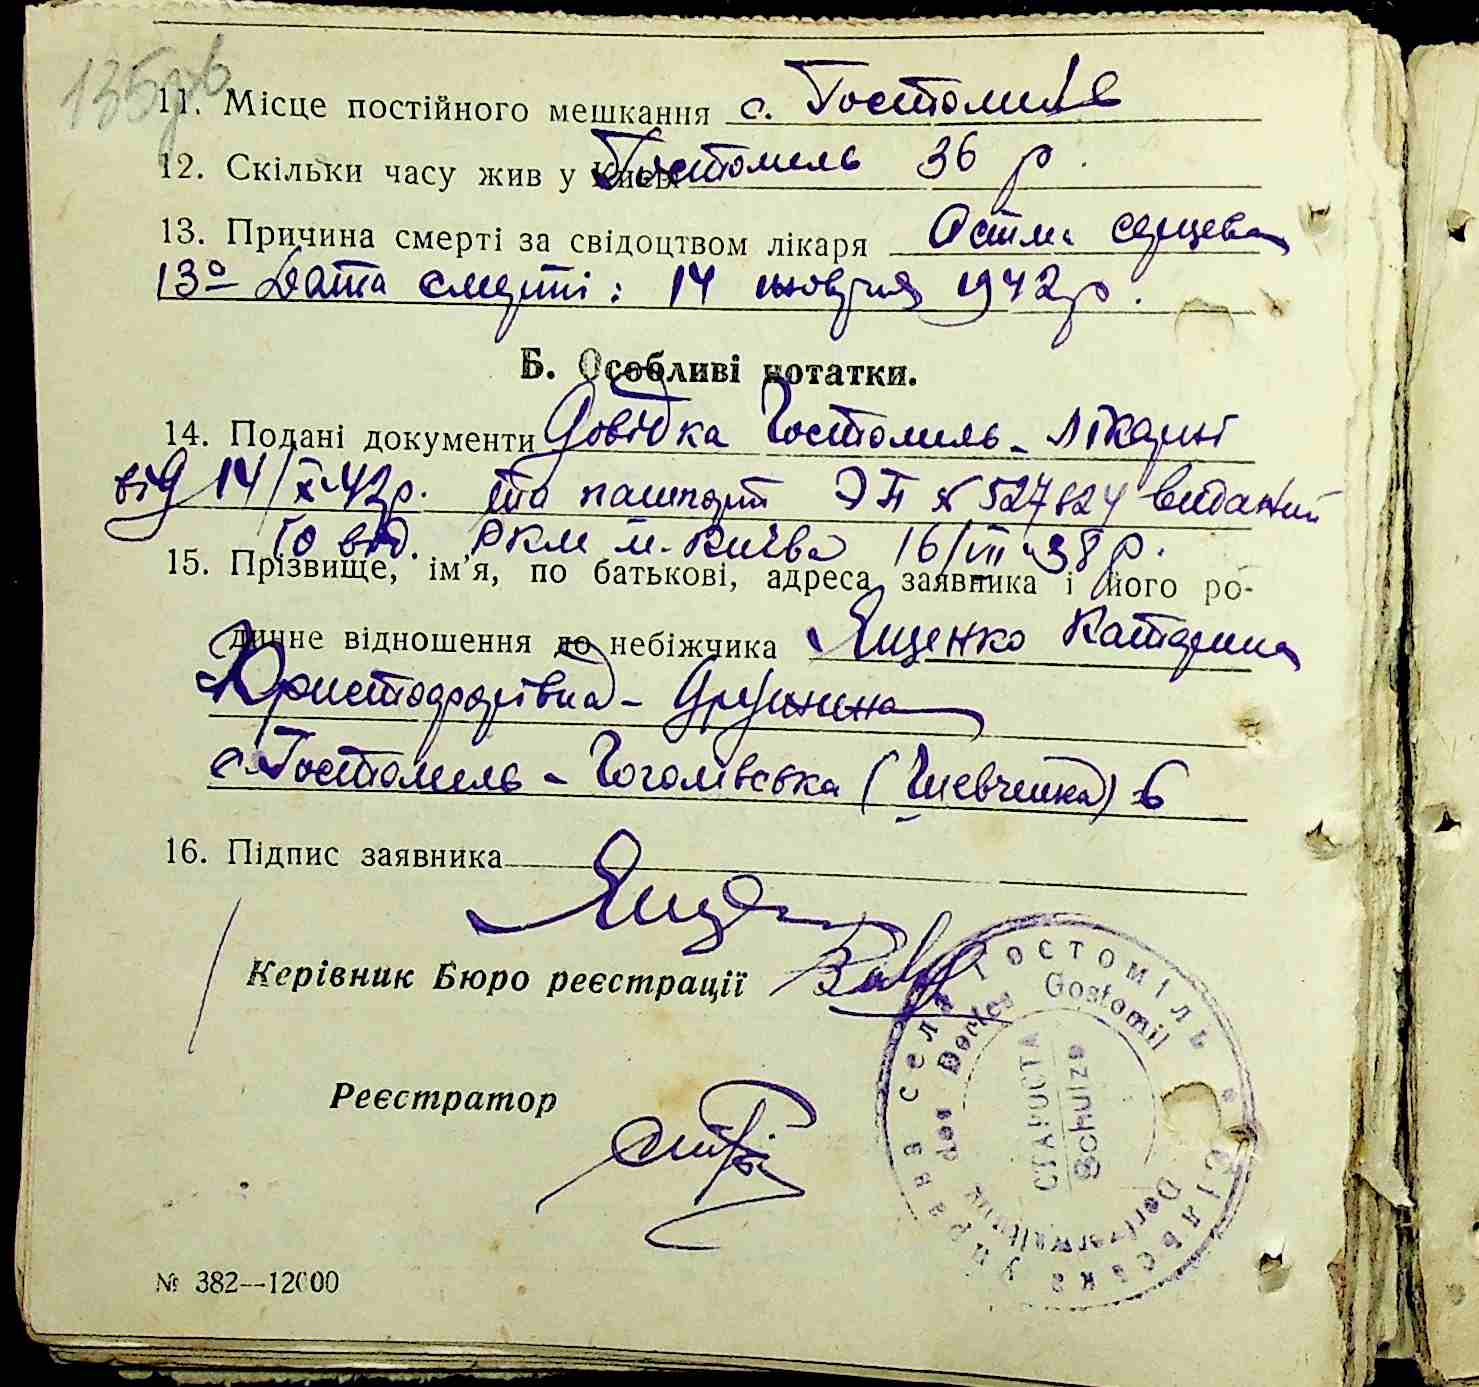 135зв
11. Місце постійного мешкання с. Гостомиль
12. Скільки часу жив у Києві Гостомель 36 р.
13. Причина смерті за свідоцтвом лікаря Астма серцева
13а Дата смерті: 14 жовтня 1942 р.
Б. Особливі нотатки.
14. Подані документи Довідка Гостомиль- лікарні
від 14/X-42р. та пашпорт ЭП № 527824 виданий
10 від. РКМ м. Київа 16/VII 38 р.
15. Прізвище, ім'я, по батькові, адреса заявника і його ро-
динне відношення до небіжчика Ященко Катерина
Христофорівна - Дружина
с. Гостомель - Гоголівська (Шевченка) 6
16. Підпис заявника
Ященко
Керівник Бюро реєстрації
Реєстратор
Сільська управа села Гостоміль
Dorfverwaltung des Dorfes Gostomil
СТАРОСТА
Schulze
№ 382—12000